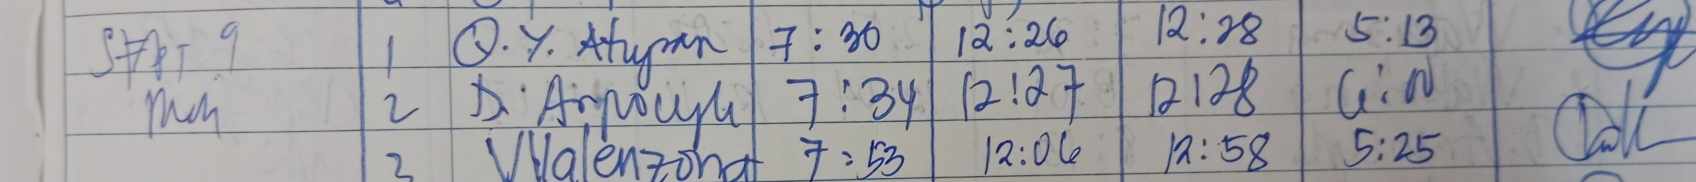 SEPT 9 1 Q.Y. Atupan 7:30 12:26 12:28 5:13
Mon 2 D. 7:34 12:27 12:28
3 Valenzona 7:53 12:06 12:58 5:25